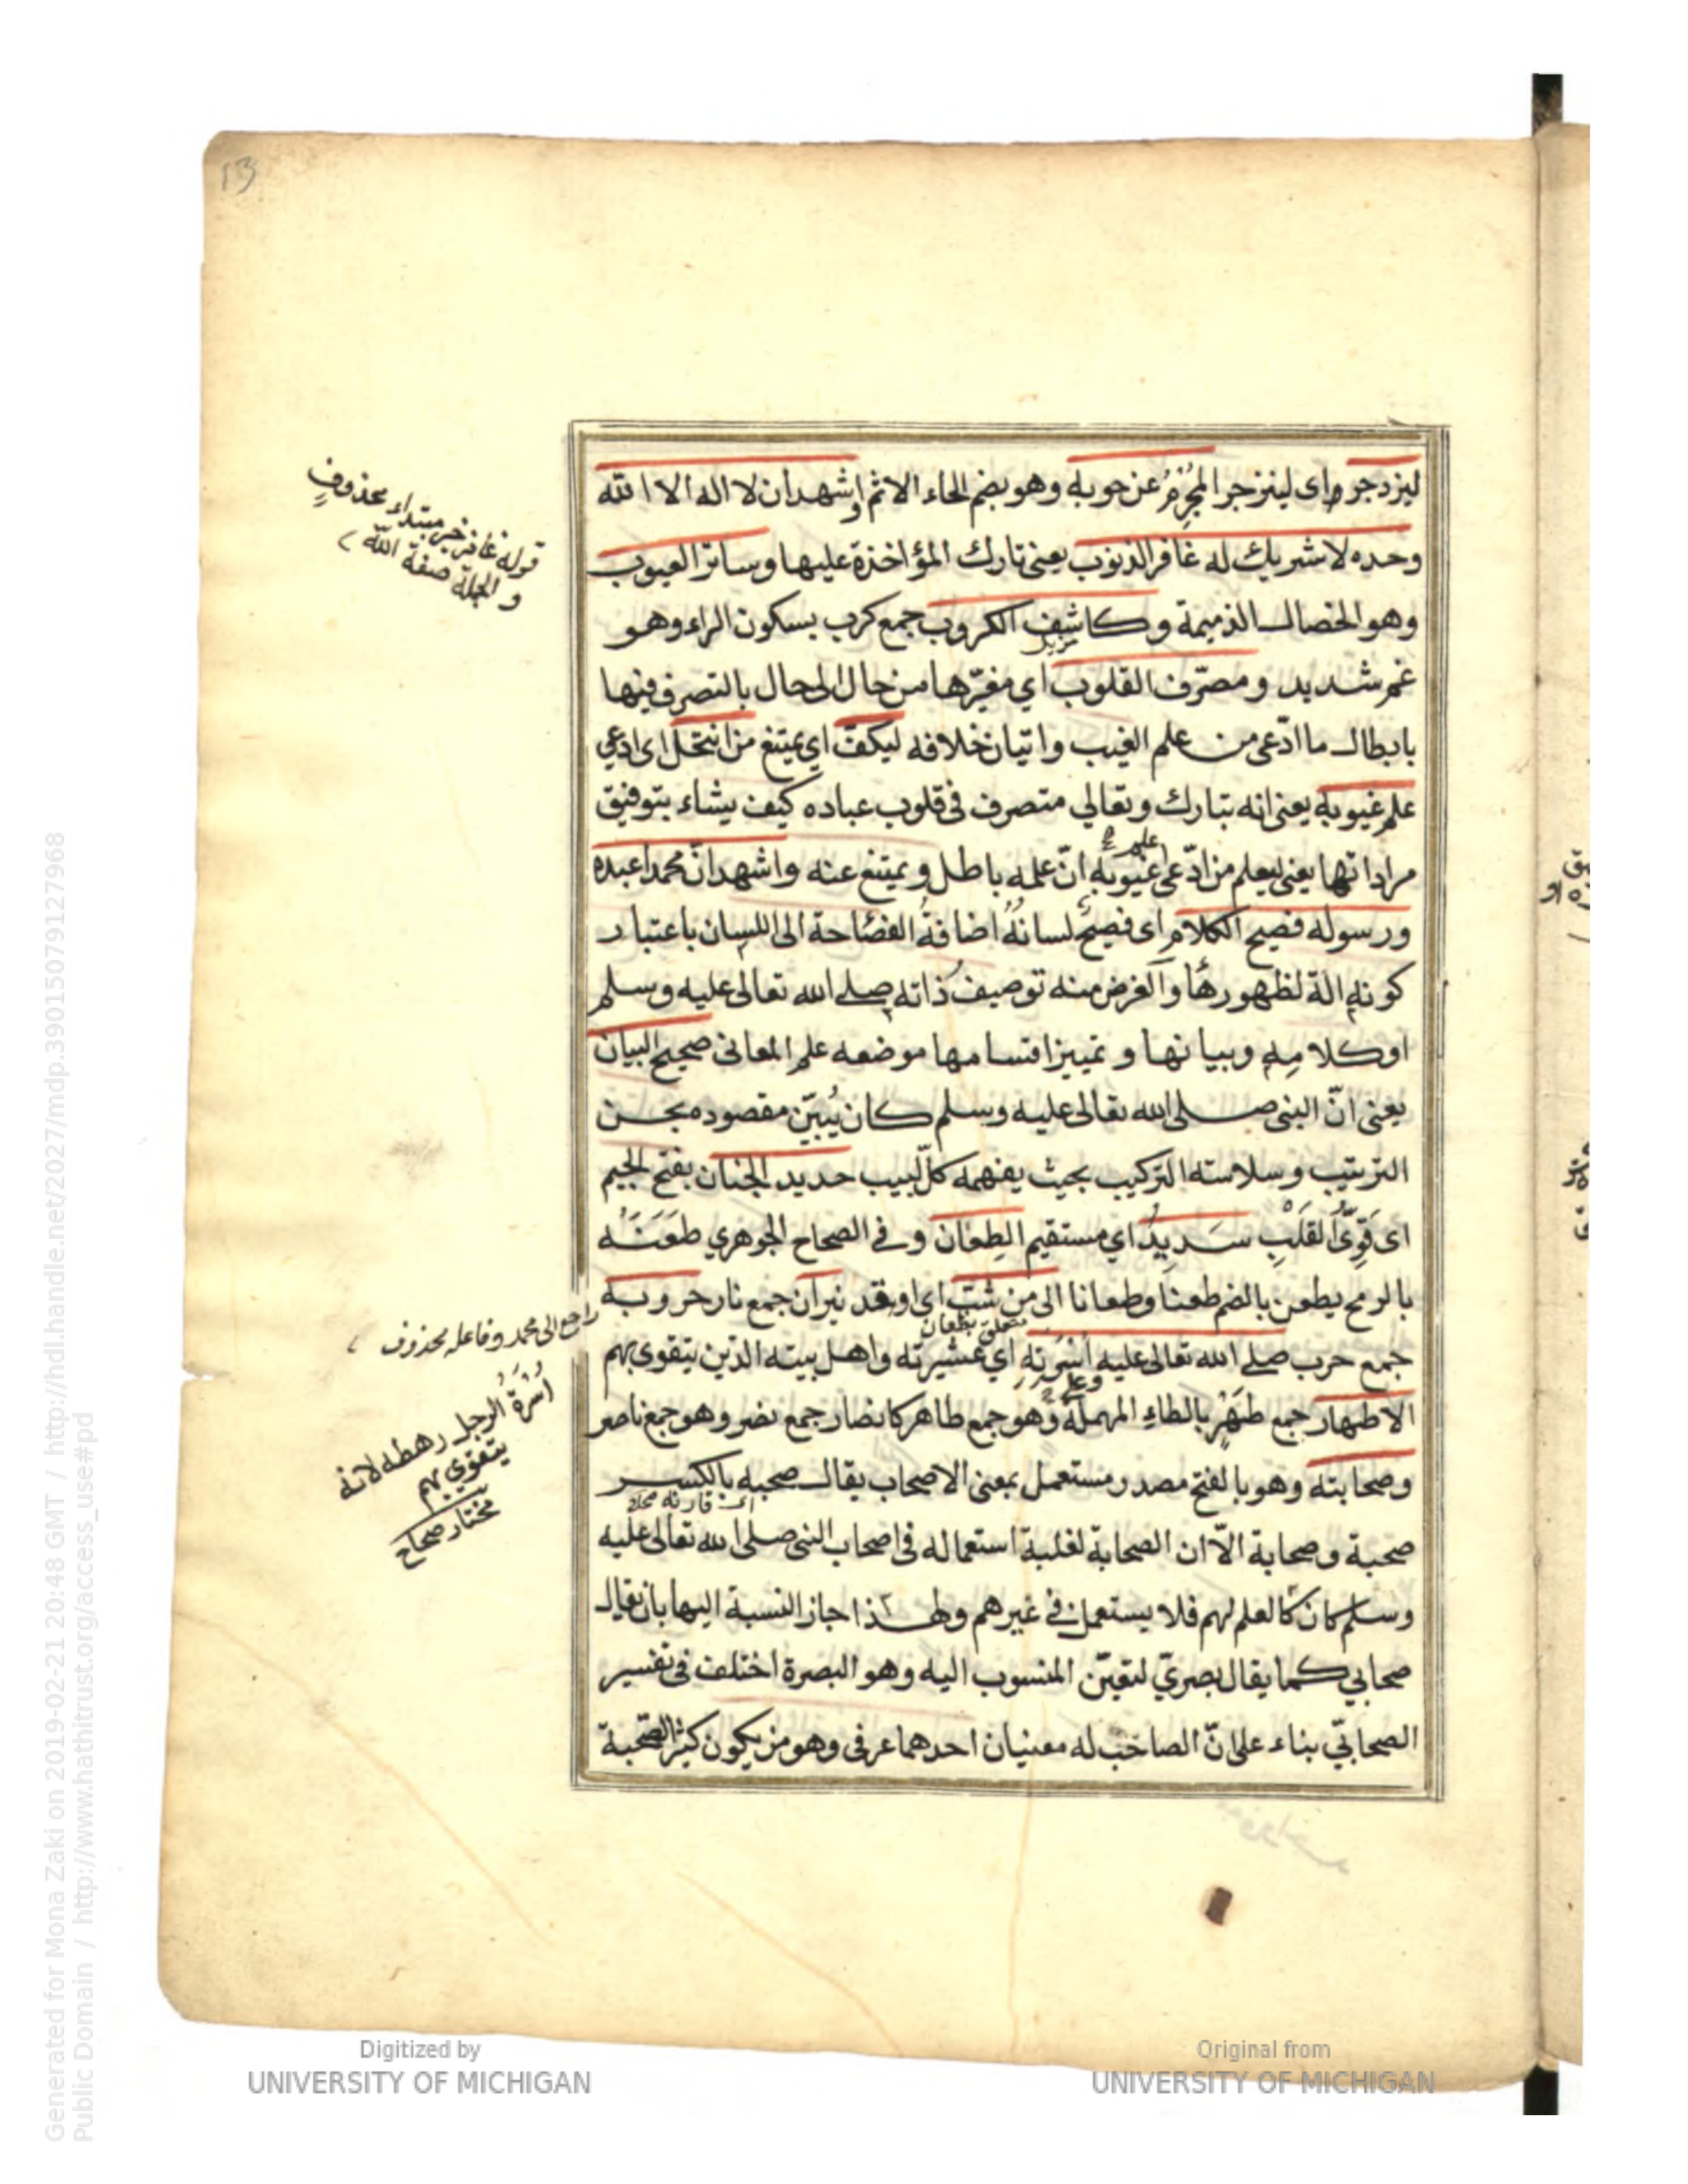 13
ليزدجر اى لينزجر المجرم عن حوبه وهو بضم الحاء الاثم واشهد ان لا اله الا الله
وحده لا شريك له غافر الذنوب يعنى تارك المؤاخذة عليها وساتر العيوب
وهو الخصال الذميمة وكاشف الكروب جمع كرب بسكون الراء وهو
مزيل
غم شديد ومصرّف القلوب اي مغيّرها من حال الى حال بالتصرف فيها
بابطال ما ادّعى من علم الغيب واتيان خلافه ليكفّ اي يمتنع من انتحل اى ادعي
علم غيوبه يعنى انه تبارك وتعالي متصرف فى قلوب عباده كيف يشاء بتوفيق
علم
مراداتها يعنى ليعلم من ادّعى غيوبه انّ علمه باطل ويمتنع عنه واشهد انّ محمدا عبده
ورسوله فصيح الكلام اى فصيح لسانه اضافة الفصاحة الى اللسان باعتبار
كونه الة لظهورها والغرض منه توصيف ذاته صلى الله تعالى عليه وسلم
او كلامه وبيانها وتمييز اقسامها موضعه علم المعانى صحيح البيان
يعنى انّ النبى صلى الله تعالى عليه وسلم كان يُبيّن مقصوده بحسن
الترتيب وسلاسته التركيب بحيث يفهمه كلّ لبيب حديد الجنان بفتح الجيم
اى قوىّ القلب سديد اي مستقيم الطعان وفى الصحاح الجوهري طعنه
بالرمح يطعن بالضم طعنا وطعانا الى من شبّ اى اوقد نيران جمع نار حروبه
متعلق بطعان
جمع حرب صلى الله تعالى عليه اسرته اي عشيرته واهل بيته الذين يتقوى بهم
وعلى
الاطهار جمع طهر بالطاء المهملة وهو جمع طاهر كانصار جمع نصر وهو جمع ناصر
وصحابته وهو بالفتح مصدر مستعمل بمعنى الاصحاب يقال صحبه بالكسر
صحبة وصحابة الّا ان الصحابة لغلبة استعماله فى اصحاب النبى صلى الله تعالى عليه
وسلم كان كالعلم لهم فلا يستعمل فى غيرهم ولهذا جاز النسبة اليها بان يقال
صحابي كما يقال بصريّ لتعيّن المنسوب اليه وهو البصرة اختلف فى تفسير
الصحابيّ بناء على انّ الصاحب له معنيان احدهما عرفى وهو من يكون كثير الصحبة
قوله غافر خبر مبتداء محذوف
و الجملة صفة الله
راجع الى محمد وفاعله محذوف
اسرة الرجل رهطه لانه
يتقوي بهم
مختار صحاح
Digitized by
UNIVERSITY OF MICHIGAN
Original from
UNIVERSITY OF MICHIGAN
Generated for Mona Zaki on 2019-02-21 20:48 GMT / http://hdl.handle.net/2027/mdp.39015079127968
Public Domain / http://www.hathitrust.org/access_use#pd